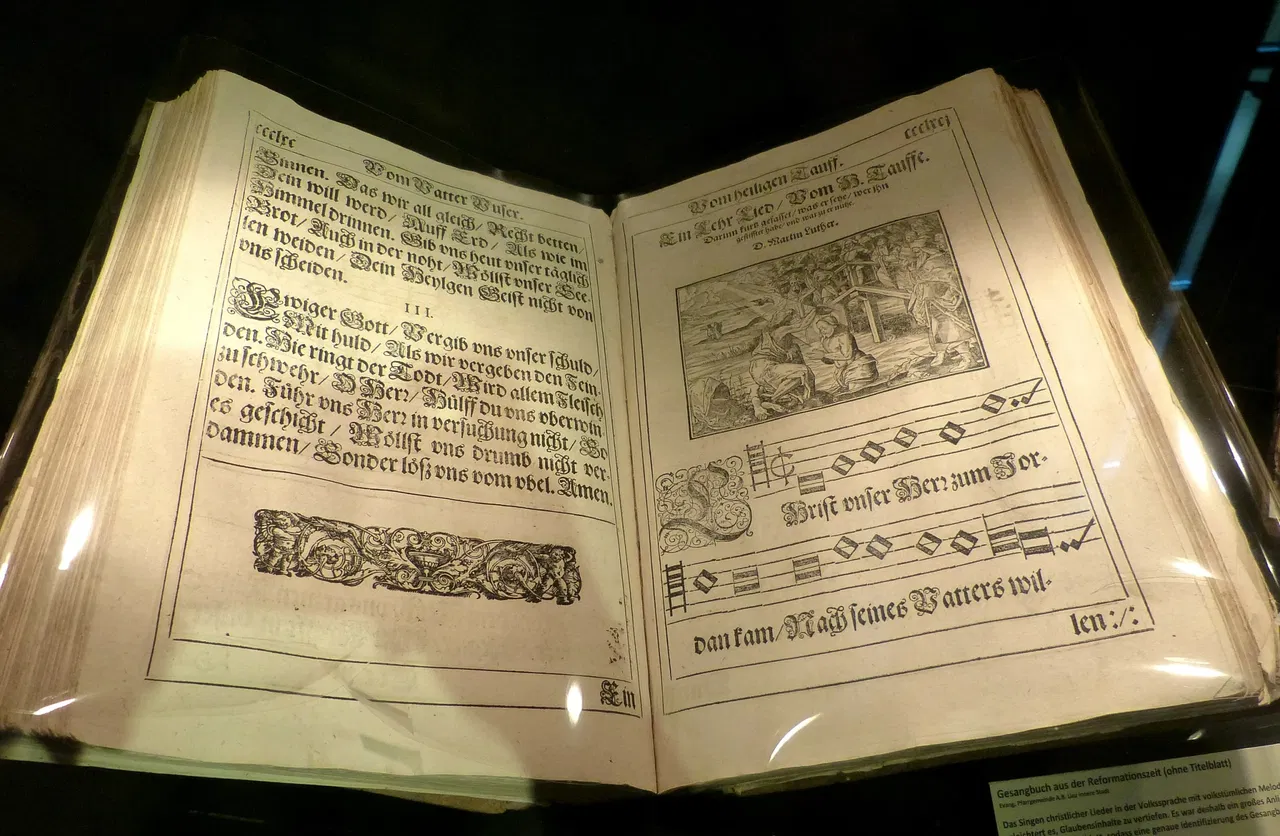 ccclxc
Vom Vatter Vnser.
Sinnen. Das wir all gleich / Recht betten /
Dein will werd / Auff Erd / Als wie im
Himmel drinnen. Gib vns heut vnser täglich
Brot / Auch in der noht / Wöllst vnser See-
len weiden / Dein Heylgen Geist nicht von
vns scheiden.
III.
Ewiger Gott / Vergib vns vnser schuld /
Mit huld / Als wir vergeben den Fein-
den. Hie ringt der Todt / Wird allem Fleisch
zu schwehr / O Herr / Hülff du vns vberwin
den. Führ vns Herr in versuchung nicht / So
es geschicht / Wöllst vns drumb nicht ver-
dammen / Sonder löß vns vom vbel. Amen.
Ein
ccclxcj
Vom heiligen Tauff.
Ein Lehr Lied / Vom H. Tauffe.
Darinn kurtz gefasset / was er seye / wer ihn
gestifftet habe / vnd warzu er nütze.
D. Martin Luther.
Christ vnser Herr zum Jor-
dan kam / Nach seines Vatters wil-
len :/:
Gesangbuch aus der Reformationszeit (ohne Titelblatt)
Evang. Pfarrgemeinde A.B.
Das Singen christlicher Lieder in der Volkssprache mit volkstümlichen Melod
es, Glaubensinhalte zu vertiefen. Es war deshalb ein großes Anli
eine genaue Identifizierung des Gesangb